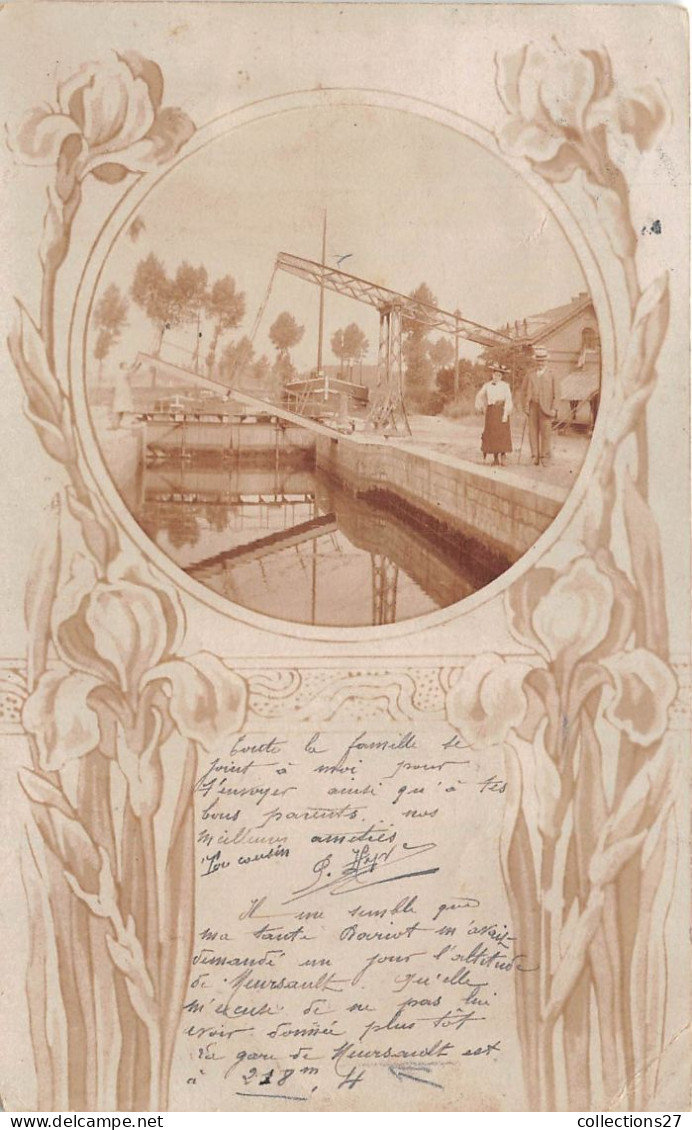 Toute la famille se
joint à moi pour
t'envoyer ainsi qu'à tes
bons parents... nos
meilleures amitiés
Ton cousin
Il me semble que
ma tante Bariot m'avait
demandé un jour l'altitude
de Meursault. Qu'elle
m'excuse de ne pas lui
avoir donnée plus tôt
La gare de Meursault est
à 218m,4
collections27